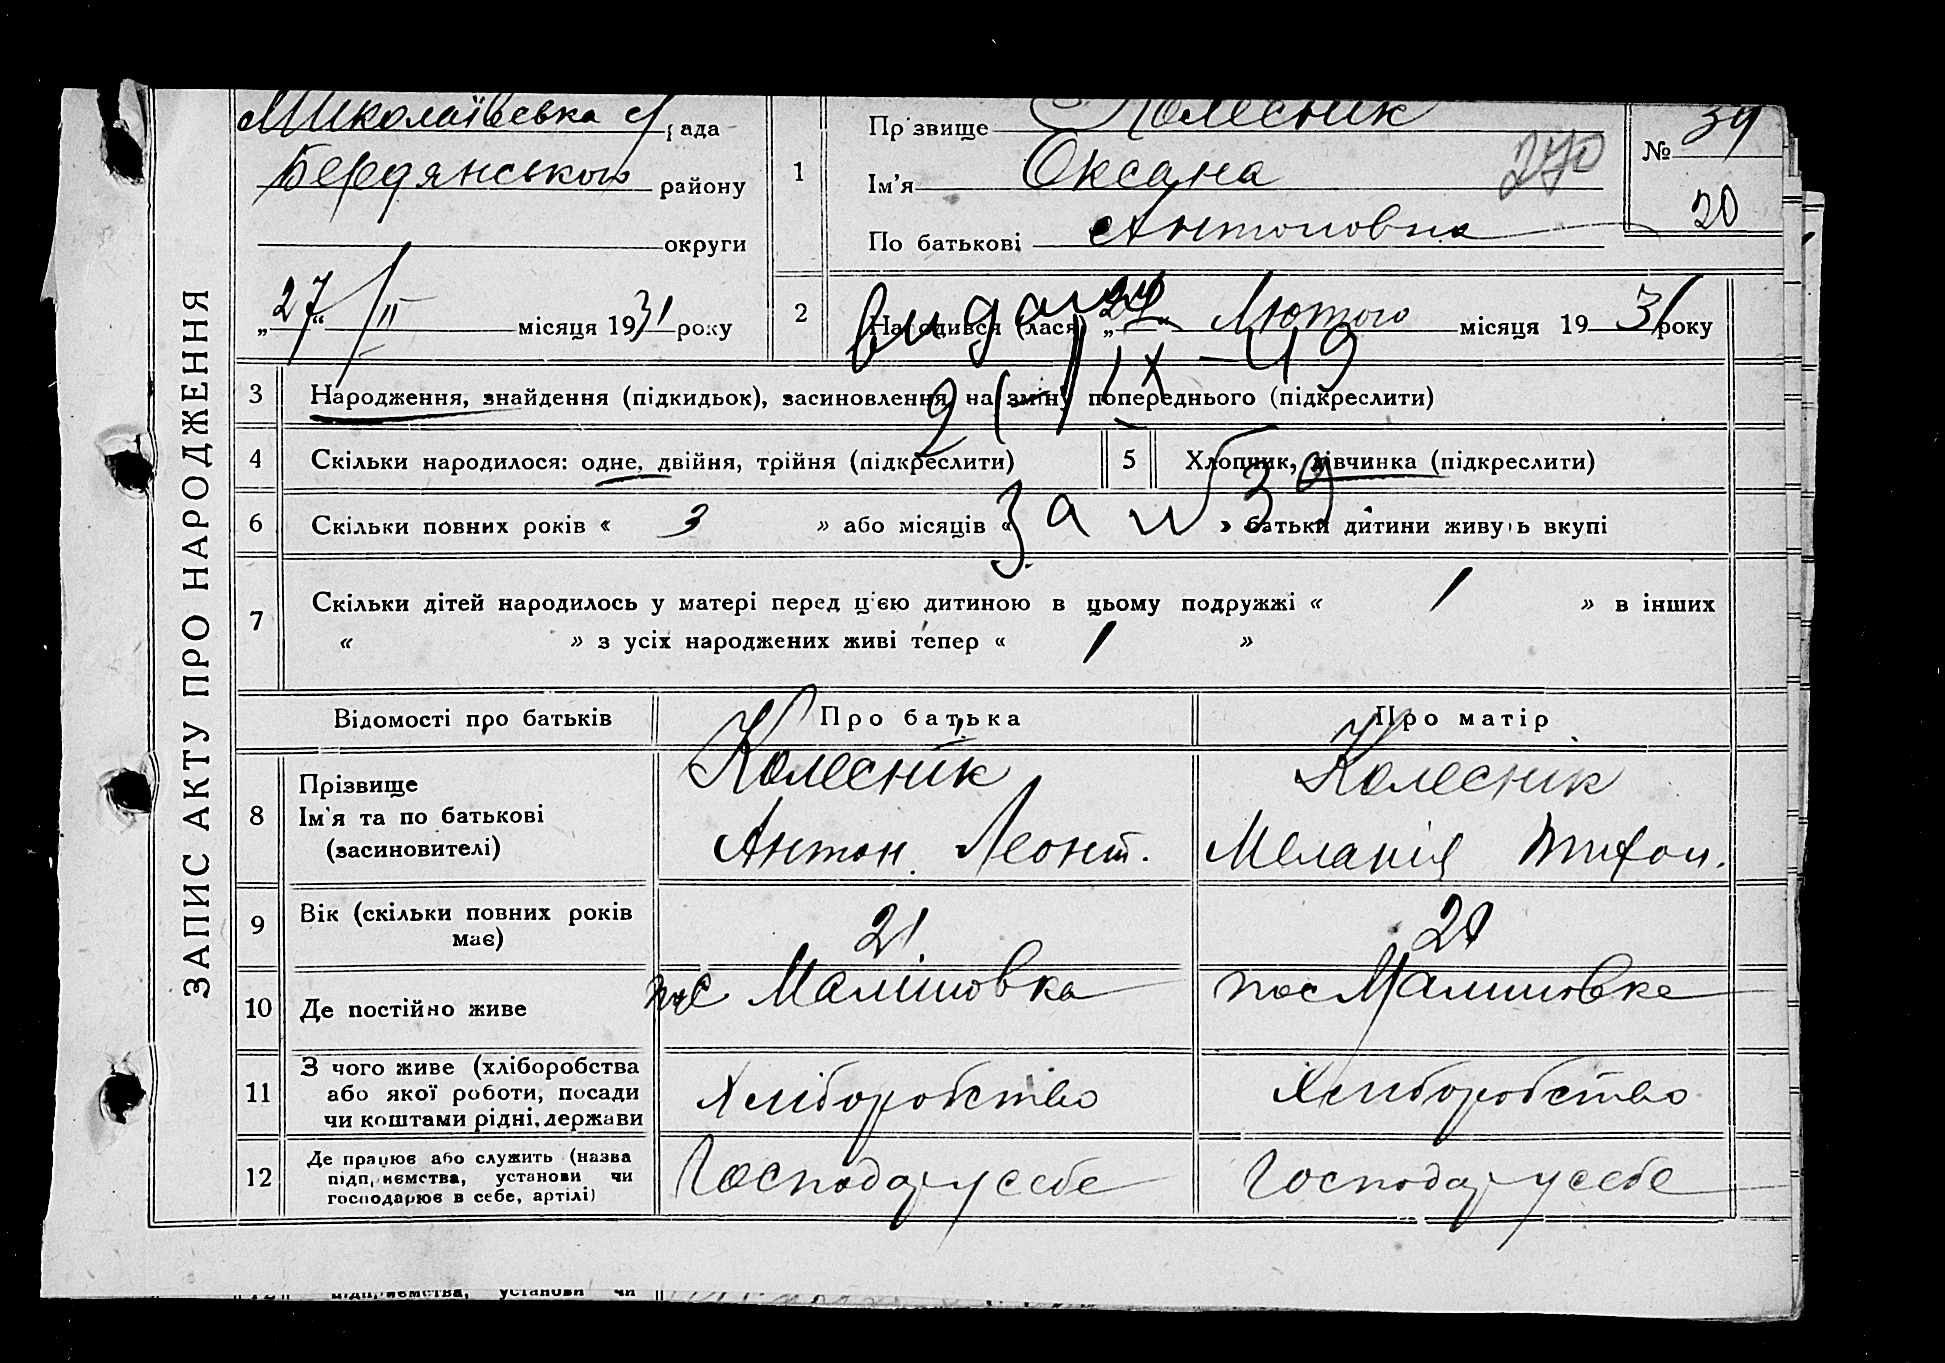 ЗАПИС АКТУ ПРО НАРОДЖЕННЯ
Миколаївська с/рада
Бердянського району
округи
„27“ II місяця 1931 року
1
Прізвище Колесник
Ім’я Оксана
По батькові Антоновна
270
№ 39
20
2
Народився (лася) „24“ Лютого місяця 1931 року
3 Народження, знайдення (підкидьок), засиновлення, на зміну попереднього (підкреслити)
4 Скільки народилося: одне, двійня, трійня (підкреслити) 5 Хлопчик, дівчинка (підкреслити)
6 Скільки повних років « 3 » або місяців « » батьки дитини живуть вкупі
7 Скільки дітей народилось у матері перед цією дитиною в цьому подружжі « 1 » в інших
« » з усіх народжених живі тепер « 1 »
Відомості про батьків Про батька Про матір
8 Прізвище Колеснік Колеснік
Ім’я та по батькові
(засиновителі) Антон Леонт. Меланія Тихон.
9 Вік (скільки повних років
має) 21
10 Де постійно живе пос Малиновка пос Малиновке
11 З чого живе (хліборобства
або якої роботи, посади
чи коштами рідні, держави Хліборобство Хліборобство
12 Де працює або служить (назва
підприємства, установи чи
господарює в себе, артілі) Господар у себе Господар у себе
за № 39
підприємства, установи чи